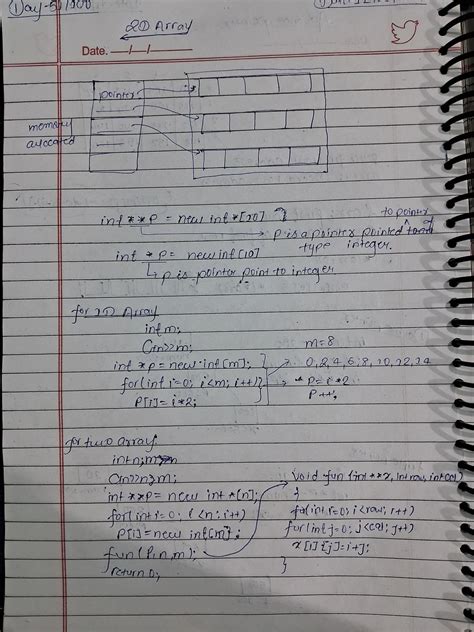 ① Day-5/100
2D Array
Date. __/__/__
pointer
memory
allocated
int **p = new int*[20]
to pointer
p is a pointer pointed to and of
type integer.
int *p = new int[10]
p is pointer point to integer
for 1D Array
int m;
Cin>>m;
m=8
int *p = new int[m];
0,2,4,6,8,10,12,14
for(int i=0; i<m; i++)
*p = i*2
P[i]=i*2;
p++;
for two array
int n,m;
Cin>>n>>m;
void fun (int **x, int row, int col)
int **p = new int *[n];
{
for(int i=0; i<n; i++)
for(int i=0; i<row; i++)
P[i]=new int[m];
for(int j=0; j<col; j++)
fun(p,n,m);
x[i][j]=i+j;
return 0;
}